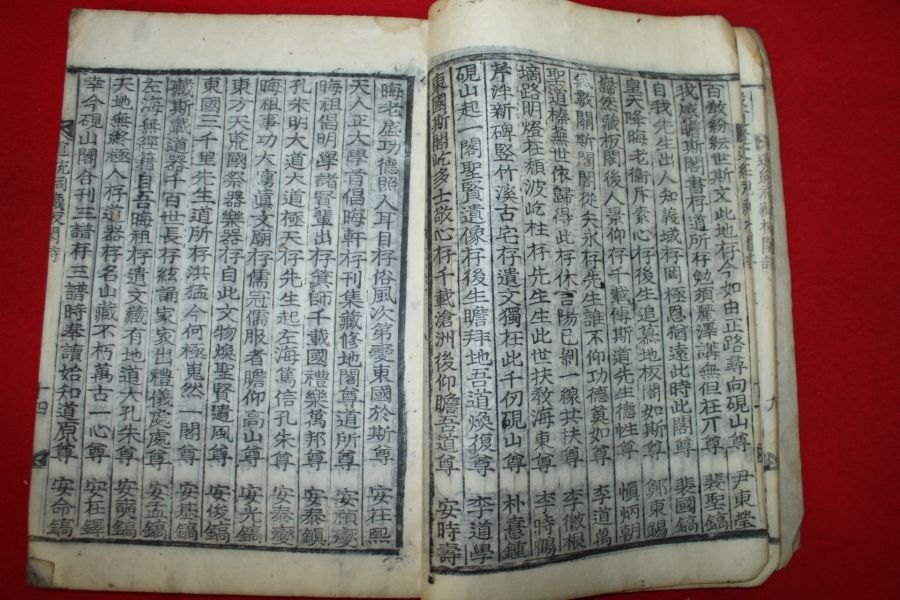 百教紛紜世斯文此地存今如由正路尋向硯山尊 尹東瑩
我感瞻斯閣書存道所存勉須麗澤講無但在丌尊 裴聖鎬
自我先生出人知義域存罔極恩猶遠此時此閣尊 裴國鎬
皇天降晦老衛斥素心存後生追慕地板閣如斯尊 鄭東錫
巋然藏板閣後人景仰存千載傳斯道先生德性尊 愼炳朝
氣數關斯閣閣從矢永存先生誰不仰功德莫如尊 李道萬
聖道榛蕪世依歸得此存休言陽已剝一線共扶尊 李徽根
路明燈在頹波屹柱存先生此世扶敎海東尊 李時鶴
芹泮新碑竪竹溪古宅存遺文獨在此千仞硯山尊 朴憙鍾
硯山起一閣聖賢遺像存後生瞻拜地吾道煥復尊 李道學
東國斯閣屹多士敬心存千載滄洲後仰瞻吾道尊 安時壽
晦老盛功德照人耳目存俗風次第變東國於斯尊 安在熙
天人正大學首倡晦軒存刊集藏修地閣尊道所尊 安禎燮
晦祖倡明學諸賢輩出存箕師千載國禮樂萬邦尊 安泰鎭
孔朱明大道大道極天存先生起左海篤信孔朱尊 安泰燮
晦祖事功大寓眞文廟存儒冠儒服者瞻仰高山尊 安光鎬
東方天荒國祭器樂器存自此文物煥聖賢遺風尊 安俊鎬
東國三千里先生道所存洪猛今何極嵬然一閣尊 安基鎬
藏斯藏道器千百世長存絃誦家家出禮儀處處尊 安孟鎬
左海無經舊自吾晦祖存遺文藏有地道大孔朱尊
天地無然極人存道器存名山藏不朽萬古一心尊 安在鐸
幸今硯山閣合刊三譜存三譜時奉讀始知道原尊 安命鎬
道統祠藏板閣詩
十四